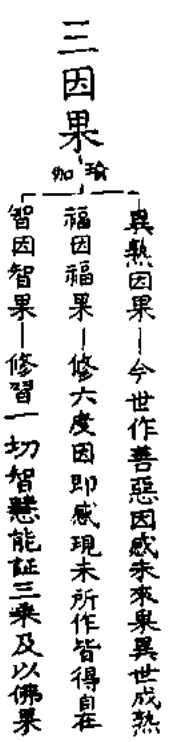 三因果
瑜伽
異熟因果—今世作善惡因感未來果異世成熟
福因福果—修六度因即感現未所作皆得自在
智因智果—修習一切智慧能証三乘及以佛果